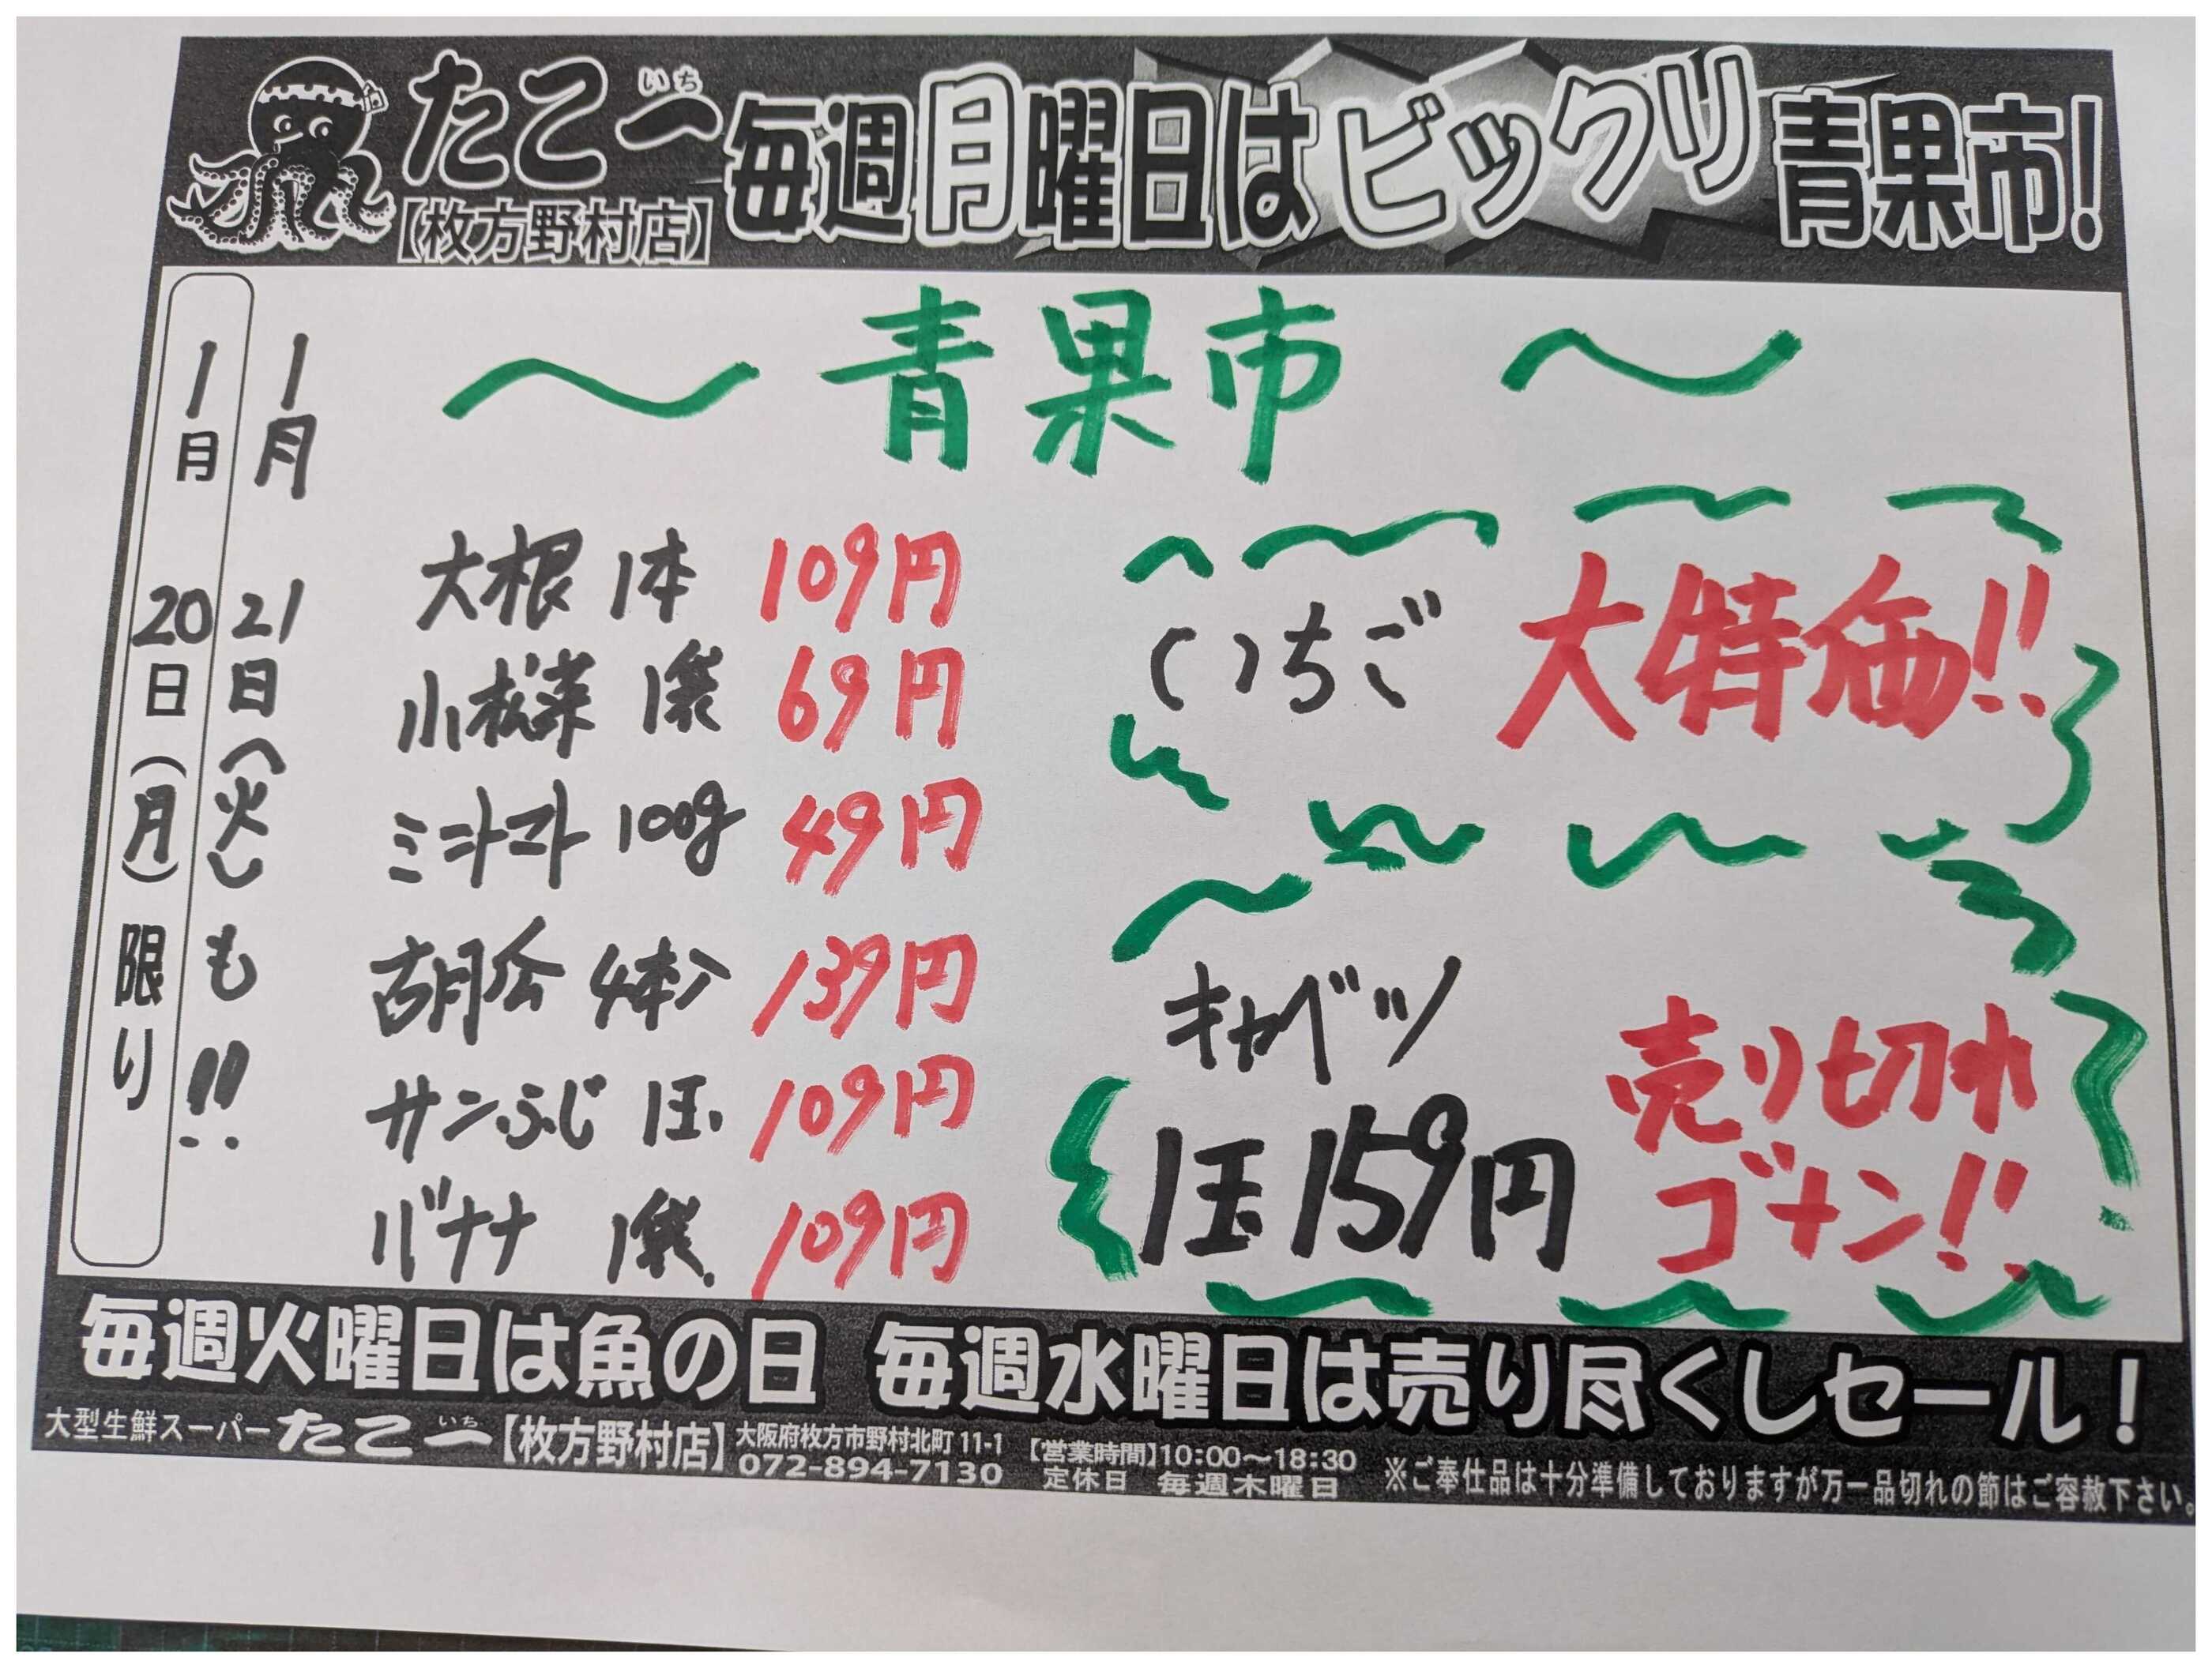 たこ一 毎週月曜日はビックリ青果市!
いち
【枚方野村店】
1月20日(月)限り
1月21日(火)も!!
〜青果市〜
大根 1本 109円
小松菜 1袋 69円
ミニトマト 100g 49円
胡瓜 4本入 139円
サンふじ 1玉 109円
バナナ 1袋 109円
いちご 大特価!!
キャベツ
1玉 159円
売り切れ
ゴメン!!
毎週火曜日は魚の日 毎週水曜日は売り尽くしセール!
大型生鮮スーパー たこ一 【枚方野村店】
いち
大阪府枚方市野村北町11-1
072-894-7130
【営業時間】10:00〜18:30
定休日 毎週木曜日
※ご奉仕品は十分準備しておりますが万一品切れの節はご容赦下さい。